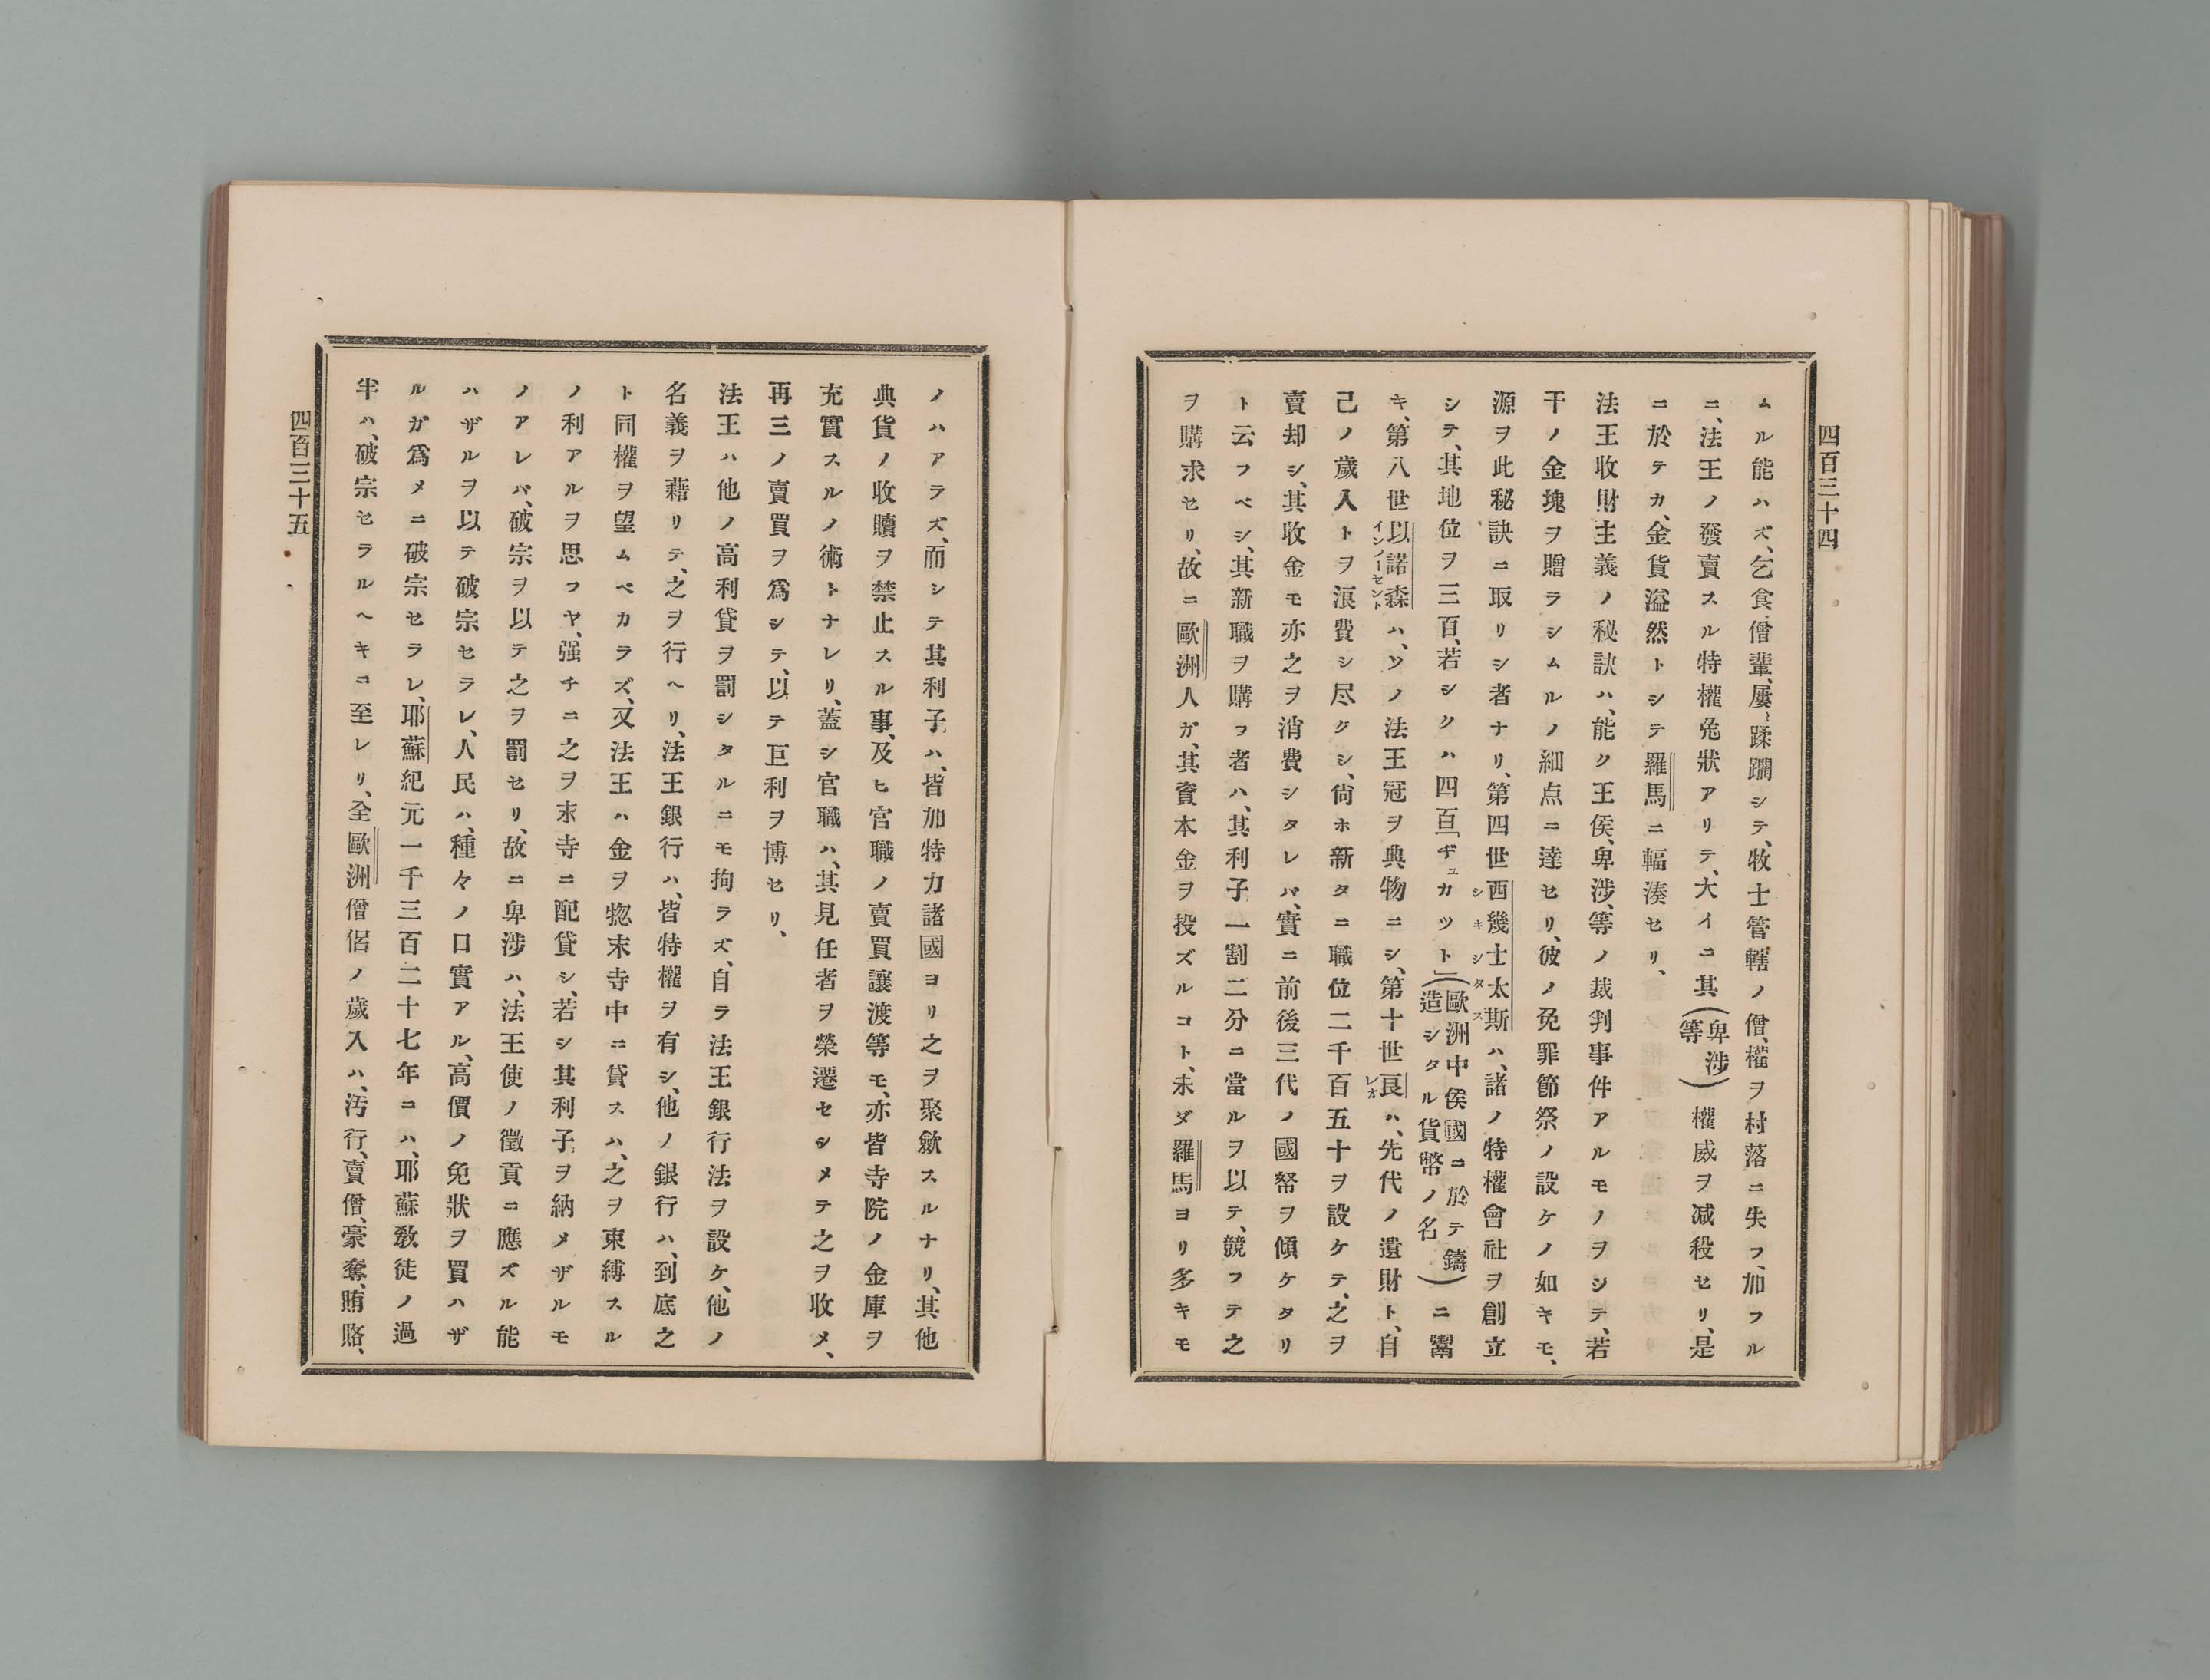 四百三十四
ムル能ハズ、乞食僧輩、屢〻蹂躙シテ、牧士管轄ノ僧權ヲ村落ニ失フ、加フル
ニ、法王ノ發賣スル特權免狀アリテ、大イニ其(卑涉等)權威ヲ減殺セリ、是
ニ於テカ、金貨溢然トシテ羅馬ニ輻湊セリ、
法王收財主義ノ秘訣ハ、能ク王侯、卑涉、等ノ裁判事件アルモノヲシテ、若
干ノ金塊ヲ贈ラシムルノ細点ニ達セリ、彼ノ免罪節祭ノ設ケノ如キモ、
源ヲ此秘訣ニ取リシ者ナリ、第四世西幾士太斯シキシタスハ、諸ノ特權會社ヲ創立
シテ、其地位ヲ三百、若シクハ四百「ヂュカット」(歐洲中侯國ニ於テ鑄造シタル貨幣ノ名)ニ鬻
キ、第八世以諾森インノーセントハ、ソノ法王冠ヲ典物ニシ、第十世良レオハ、先代ノ遺財ト、自
己ノ歲入トヲ浪費シ尽クシ、尙ホ新タニ職位二千百五十ヲ設ケテ、之ヲ
賣却シ、其收金モ亦之ヲ消費シタレバ、實ニ前後三代ノ國帑ヲ傾ケタリ
ト云フベシ、其新職ヲ購フ者ハ、其利子一割二分ニ當ルヲ以テ、競フテ之
ヲ購求セリ、故ニ歐洲人ガ、其資本金ヲ投ズルコト、未ダ羅馬ヨリ多キモ
ノハアラズ、而シテ其利子ハ、皆加特力諸國ヨリ之ヲ聚斂スルナリ、其他
典貨ノ收贖ヲ禁止スル事、及ヒ官職ノ賣買讓渡等モ、亦皆寺院ノ金庫ヲ
充實スルノ術トナレリ、蓋シ官職ハ、其見任者ヲ榮遷セシメテ之ヲ收メ、
再三ノ賣買ヲ爲シテ、以テ巨利ヲ博セリ、
法王ハ他ノ高利貸ヲ罰シタルニモ拘ラズ、自ラ法王銀行法ヲ設ケ、他ノ
名義ヲ藉リテ、之ヲ行ヘリ、法王銀行ハ、皆特權ヲ有シ、他ノ銀行ハ、到底之
ト同權ヲ望ムベカラズ、又法王ハ金ヲ惣末寺中ニ貸スハ、之ヲ束縛スル
ノ利アルヲ思フヤ、强チニ之ヲ末寺ニ配貸シ、若シ其利子ヲ納メザルモ
ノアレバ、破宗ヲ以テ之ヲ罰セリ、故ニ卑涉ハ、法王使ノ徵貢ニ應ズル能
ハザルヲ以テ破宗セラレ、人民ハ、種々ノ口實アル、高價ノ免狀ヲ買ハザ
ルガ爲メニ破宗セラレ、耶蘇紀元一千三百二十七年ニハ、耶蘇敎徒ノ過
半ハ、破宗セラルヘキニ至レリ、全歐洲僧侶ノ歲入ハ、汚行、賣僧、豪奪、賄賂、
四百三十五